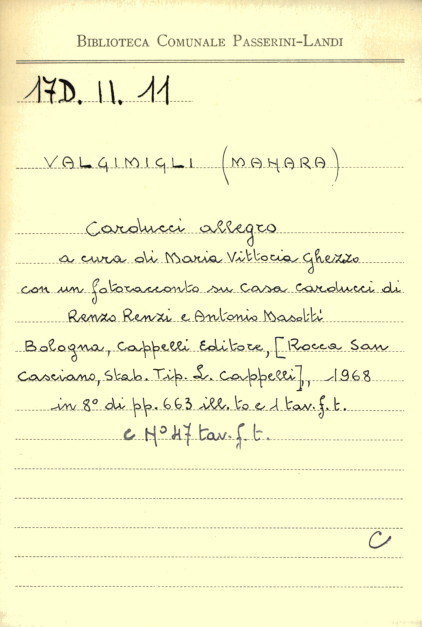 BIBLIOTECA COMUNALE PASSERINI-LANDI
17D. II. 11
VALGIMIGLI (MANARA)
Carducci allegro
a cura di Maria Vittoria Ghezzo
con un fotoracconto su Casa Carducci di
Renzo Renzi e Antonio Masotti
Bologna, Cappelli Editore, [Rocca San
Casciano, Stab. Tip. L. Cappelli], 1968
in 8° di pp. 663 ill. to e 1 tav. f. t.
e N° 47 tav. f. t.
C